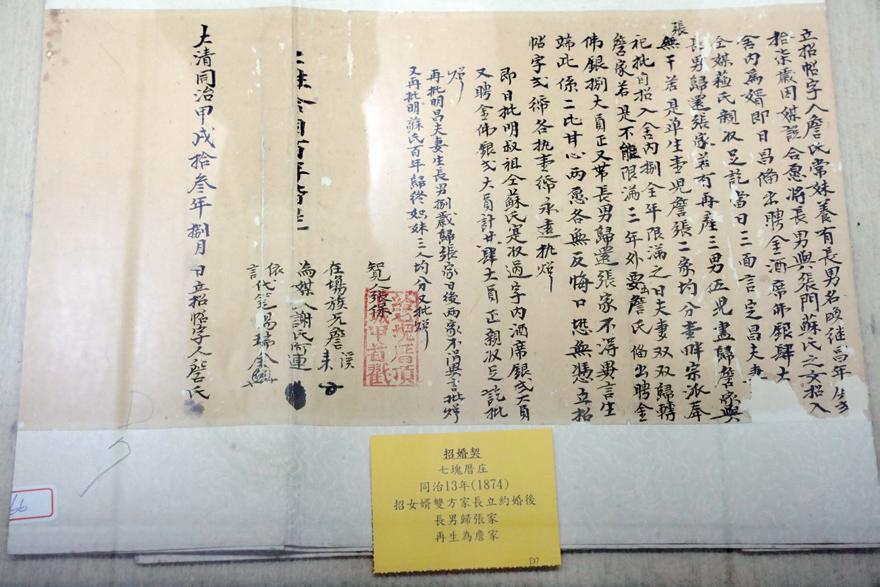 立招帖字人詹氏常妹養有長男名啟継昌年
拾柒歲因媒議合愿將長男與張門蘇氏之女招入
舍内為婿即日昌俻出聘金酒席佛銀肆大
仝媒蘇氏親收足訖當日三面言定昌夫妻
長男歸還張家若有再產三男伍兒盡歸詹家與
張
無干若是單生壹児詹張二家均分壹畔宗派奉
祀批自招入舍内捌仝年限滿之日夫妻双双歸轉
詹家若是不能限滿三年外要詹氏俻出聘金
佛銀捌大員正又帶長男歸還張家不得異言生
端此係二比甘心兩愿各無反悔口恐無憑立招
帖字弍紙各执壹紙永遠执炤
即日批明叔祖仝蘇氏寔收過字内酒席銀弍大員
又聘金佛銀弍大員計共肆大員正親收足訖批
炤
再批明昌夫妻生長男捌歲歸張家日後兩家不得異言批炤
又再批明蘇氏百年歸終姒妹三人均分又批炤
知見人張保
在塲族兄詹
為媒人謝氏
依口代筆楊瑞
大清同治甲戌拾叁年捌月 日立招帖字人詹氏
招婚契
七塊厝庄
同治13年(1874)
招女婿雙方家長立約婚後
長男歸張家
再生為詹家
D7
66